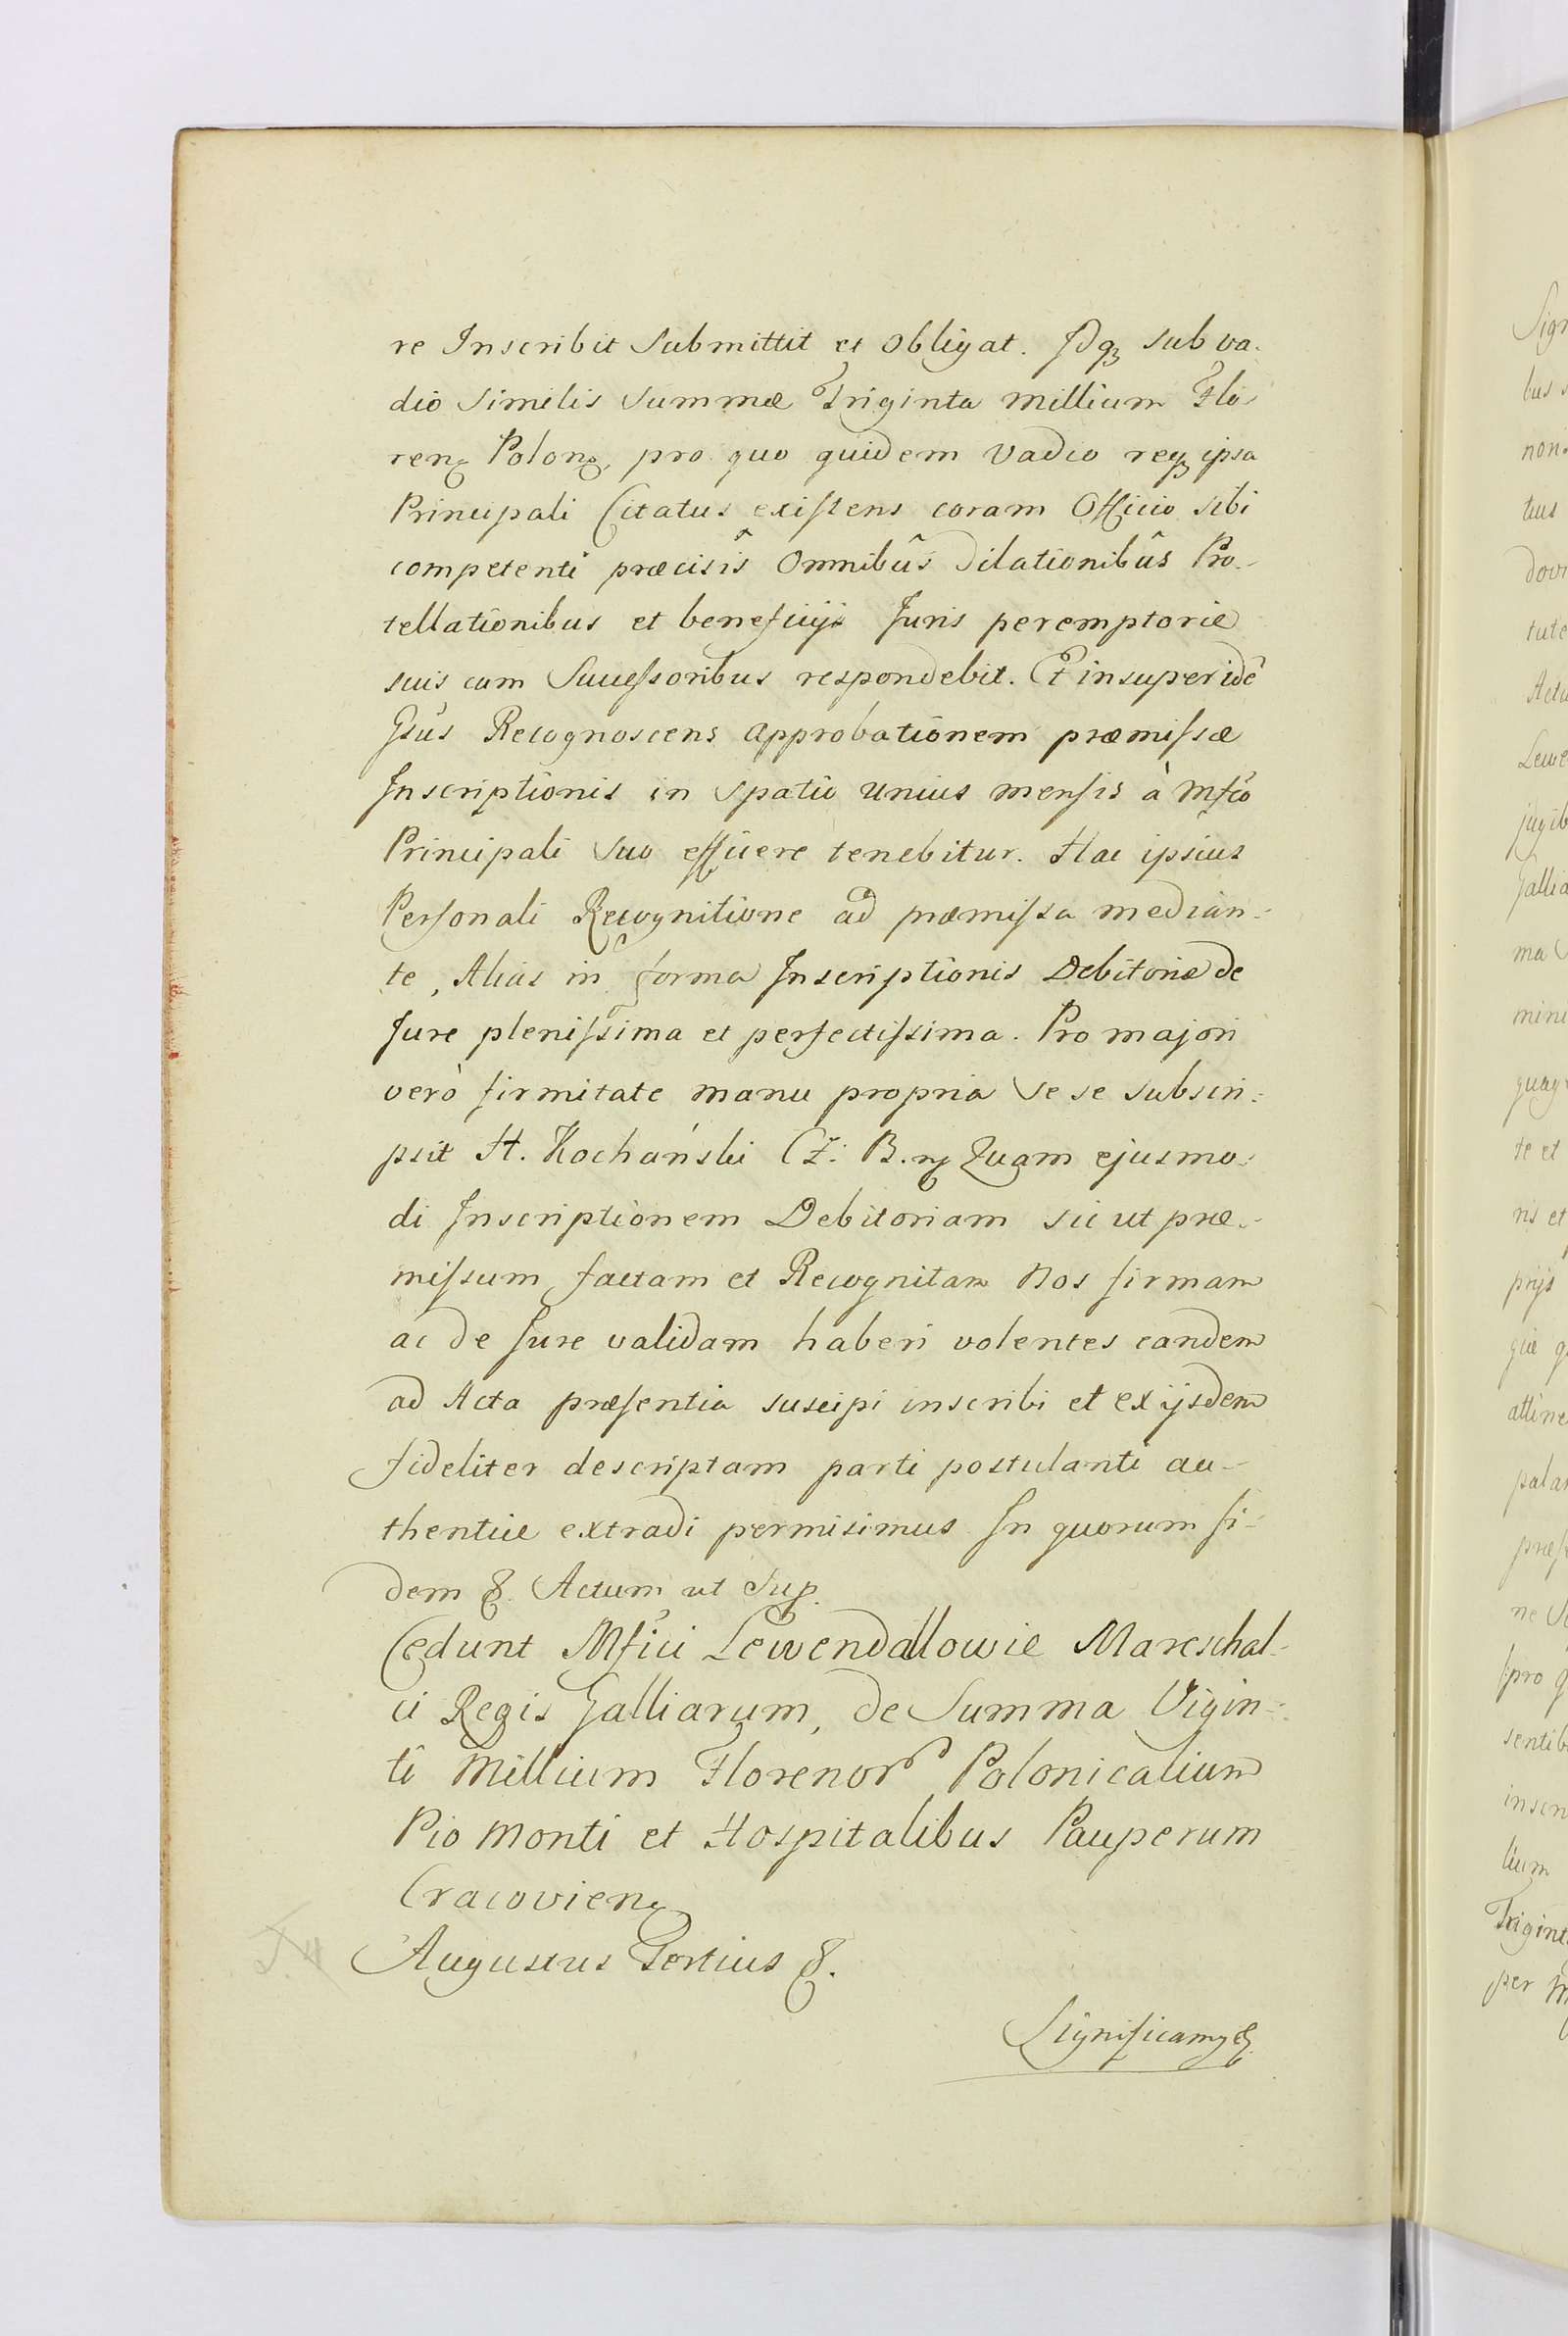 re Inscribit Submittit et obligat. Idq3 sub va-
dio Similis Summæ Triginta Millium Flo-
ren. Polon., pro quo quidem Vadio req3 ipsa
Principali Citatus existens coram Officio sibi
competenti præcisîs Omnibûs Dilationibûs Pro-
tellationibus et beneficijs Juris peremptorie
suis cum Successoribus respondebit. Et insuper idẽ
Gsũs Recognoscens approbationem præmissæ
Inscriptionis in spatio unius mensis à Mfco
Principali Suo efficere tenebitur. Hac ipsius
Personali Recognitione ad præmissa median-
te, Alias in forma Inscriptionis Debitoriæ de
Jure plenissima et perfectissima. Pro majori
verò firmitate manu propria Se se subscri-
psit H. Kochański Cz: B. mp Quam ejusmo-
di Inscriptionem Debitoriam sic ut præ-
missum factam et Recognitam Nos firmam
ac de Jure validam haberi volentes eandem
ad Acta præsentia suscipi inscribi et ex ijsdem
fideliter descriptam parti postulanti au-
thentice extradi permisimus In quorum fi-
dem &. Actum ut Sup.
Cedunt Mfici Lewendallowie Mareschal-
ci Regis Galliarum, de Summa Vigin-
ti Millium Florenor Polonicalium
Pio Monti et Hospitalibus Pauperum
Cracovien.
Augustus Tertius &.
Significamg &.